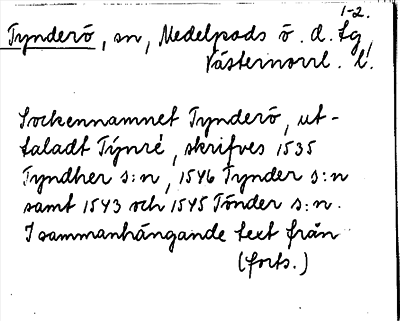 1-2.
Tynderö, sn, Medelpads ö. d. Lg
Västernorrl. l.
Sockennamnet Tynderö, ut-
taladt Týnré, skrifves 1535
Tyndher s:n, 1546 Tynder s:n
samt 1543 och 1545 Tönder s:n.
I sammanhängande text från
(forts.)